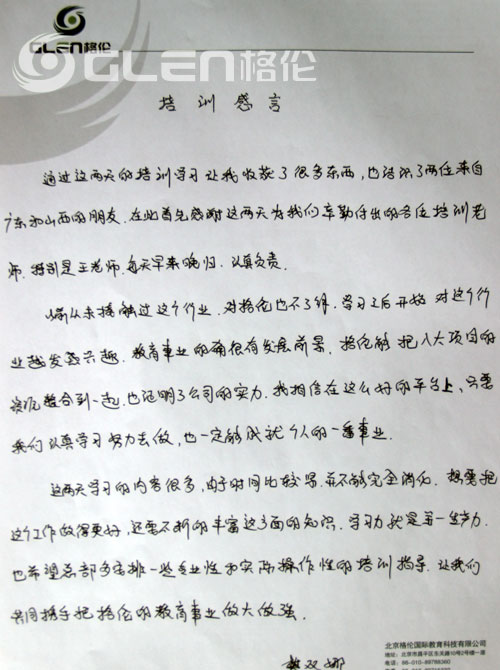 GLEN格伦
GLEN格伦
培训感言
通过这两天的培训学习让我收获了很多东西,也结识了两位来自
广东和山西的朋友.在此首先感谢这两天为我们辛勤付出的各位培训老
师.特别是王老师.每天早来晚归.认真负责.
以前从未接触过这个行业.对格伦也不了解.学习之后开始对这个行
业越发感兴趣.教育事业的确很有发展前景.格伦能把八大项目的
资源整合到一起.也证明了公司的实力.我相信在这么好的平台上.只要
我们认真学习努力去做,也一定能够成就个人的一番事业.
这两天学习的内容很多,由于时间比较紧.并不能完全消化.想要把
这个工作做得更好,还要不断的丰富这方面的知识.学习力就是第一生产力.
也希望总部多安排一些专业性和实际操作性的培训指导.让我们
共同携手把格伦的教育事业做大做强.
双娜
北京格伦国际教育科技有限公司
地址:北京市昌平区东关路10号2号楼一层
电话:86-010-89788360